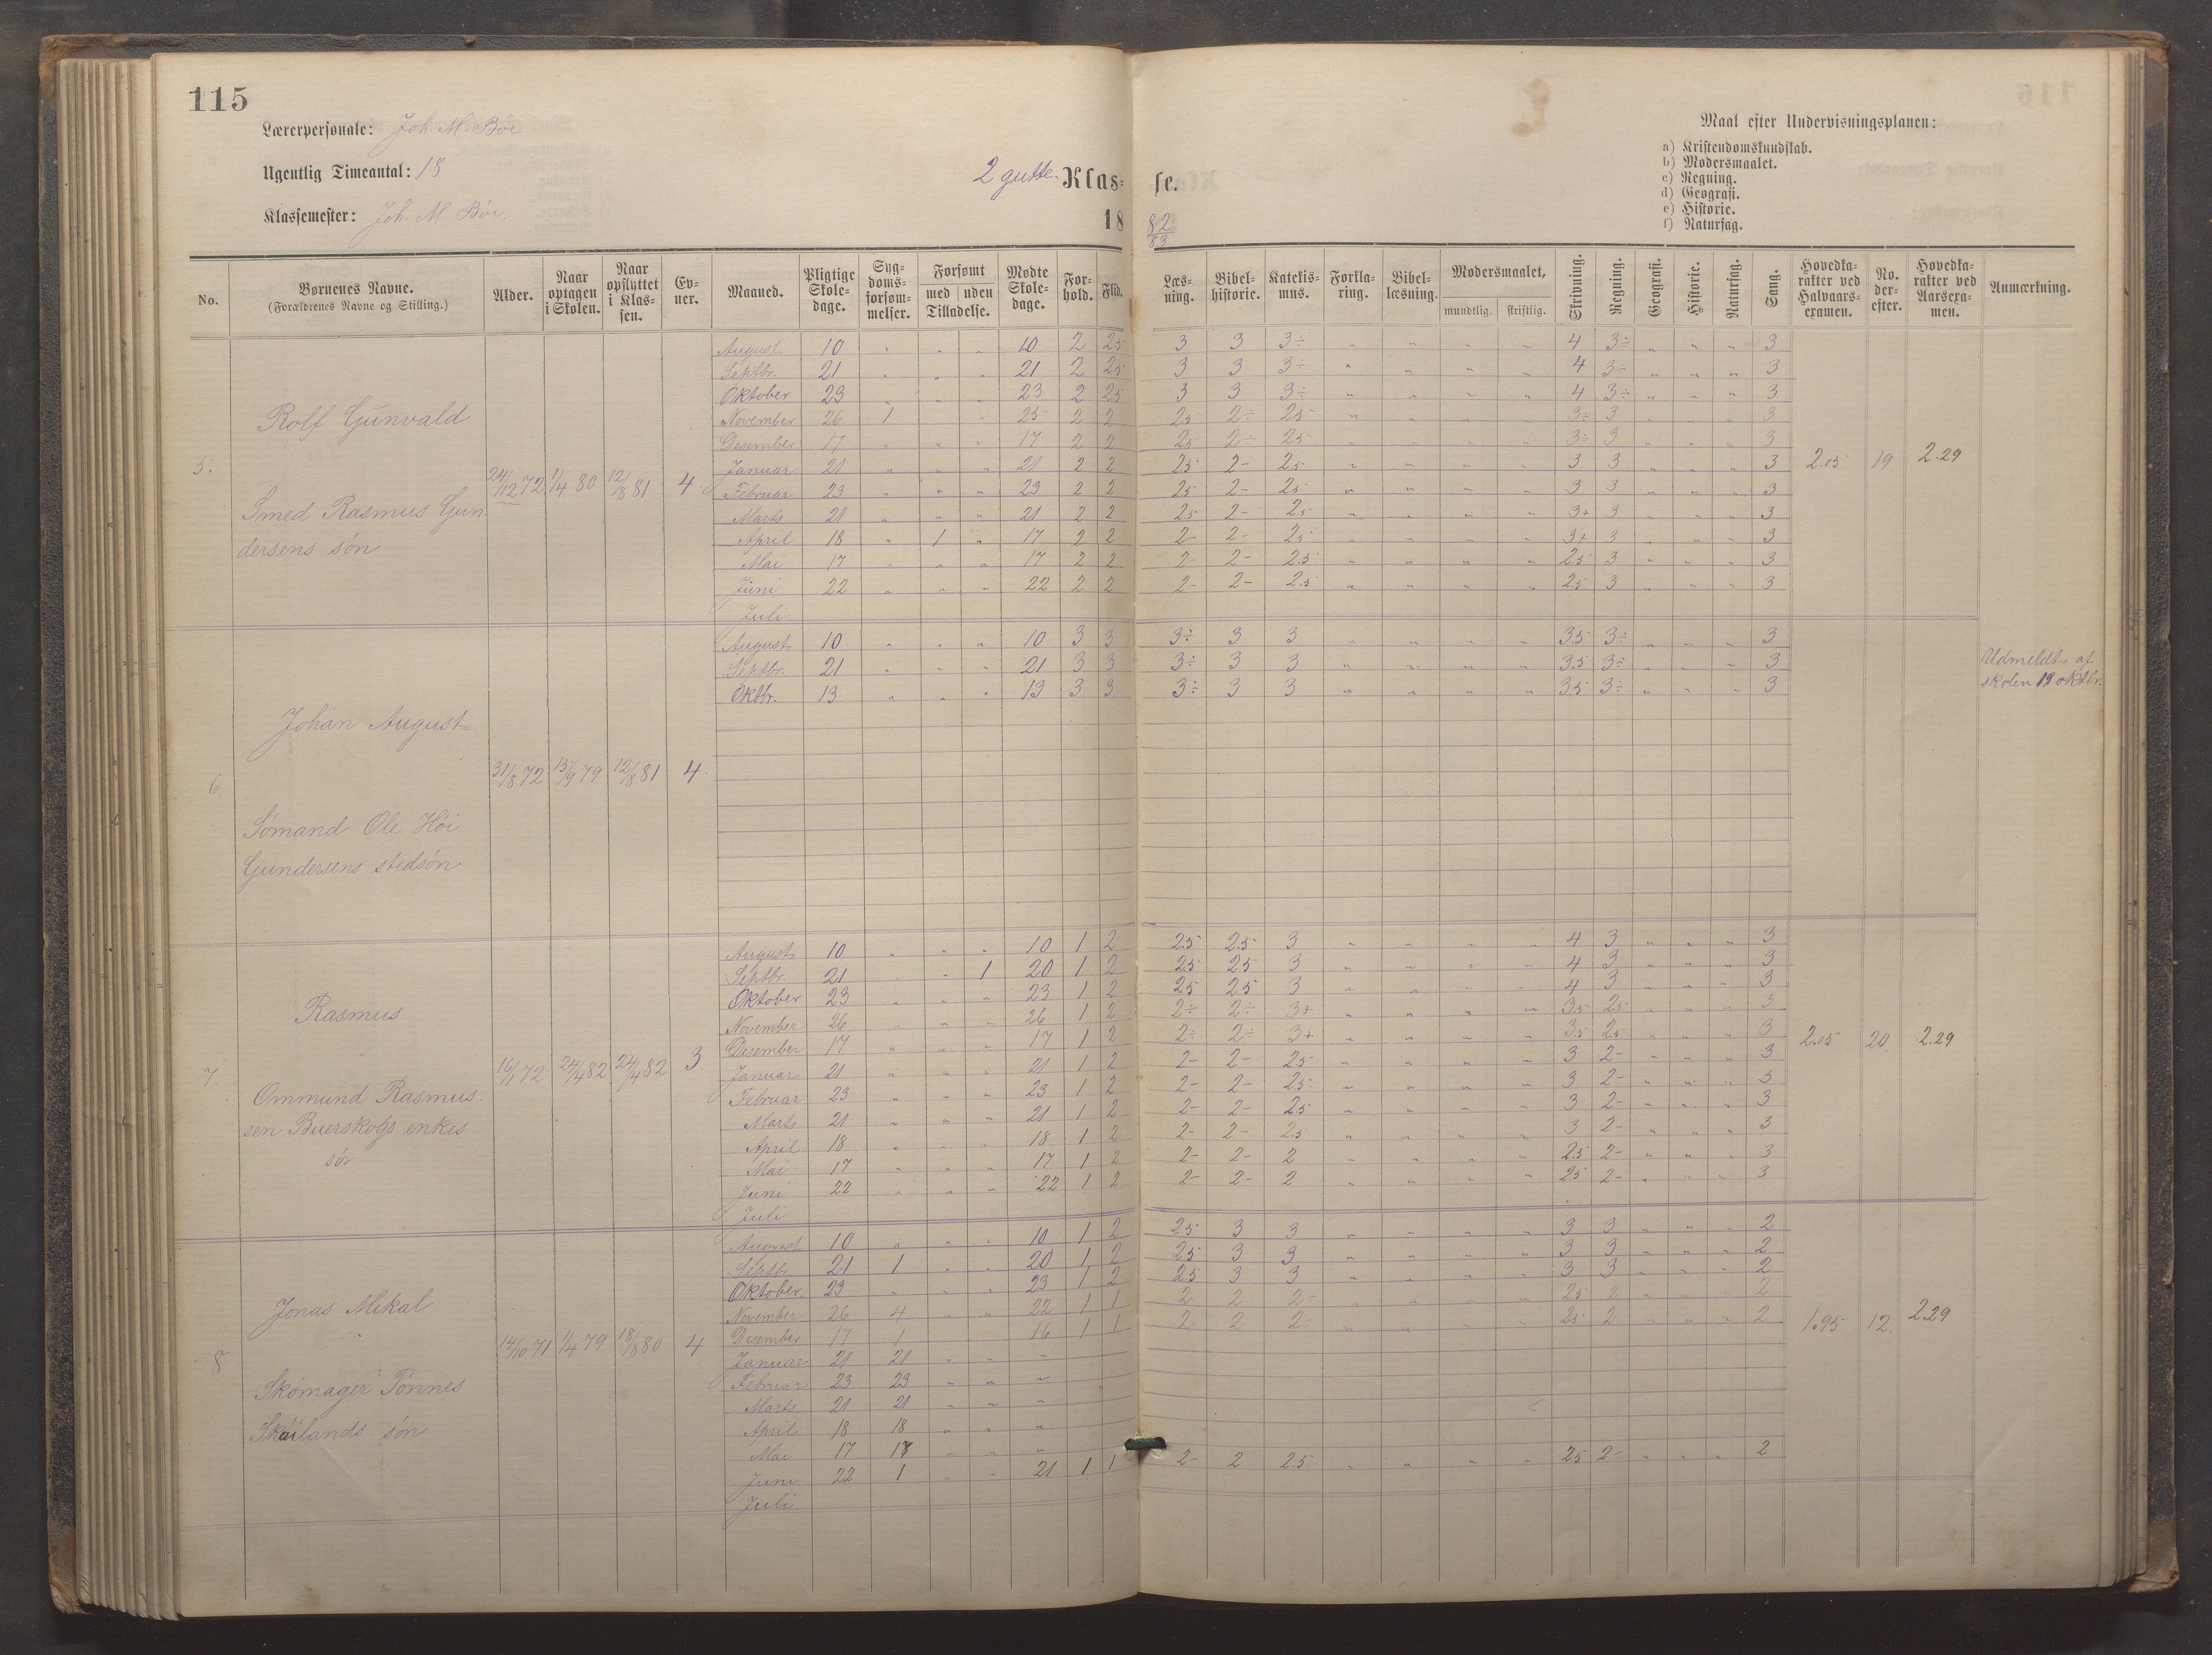 115
Lærerpersonale: Joh. M. Bøe
Ugentlig Timeantal: 18
Klassemester: Joh. M. Bøe.
2 gutte- Klas- se.
18 82/83
Maal efter Undervisningsplanen:
a) Kristendomskundskab.
b) Modersmaalet.
c) Regning.
d) Geografi.
e) Historie.
f) Naturfag.
No. Børnenes Navne. (Forældrenes Navne og Stilling.) Alder. Naar optagen i Skolen. Naar opflyttet i Klassen. Evner. Maaned. Pligtige Skoledage. Sygdomsforsømmelser. Forsømt med uden Tilladelse. Mødte Skoledage. Forhold. Flid. Læsning. Bibelhistorie. Katekismus. Forklaring. Bibellæsning. Modersmaalet, mundtlig. skriftlig. Skrivning. Regning. Geografi. Historie. Naturfag. Sang. Hovedkarakter ved Halvaarsexamen. No. derefter. Hovedkarakter ved Aarsexamen. Anmærkning.
5. Rolf Gunvald
Smed Rasmus Gun
dersens søn
24/12 72 1/4 80 12/8 81 4
August 10 " " " 10 2 25 3 3 3÷ " " " " 4 3÷ " " " 3
Septbr. 21 " " " 21 2 25 3 3 3÷ " " " " 4 3÷ " " " 3
Oktober 23 " " " 23 2 25 3 3 3÷ " " " " 4 3÷ " " " 3
November 26 1 " 25 2 2 25 2÷ 25 " " " " 3÷ 3 " " " 3
Desember 17 " " " 17 2 2 25 2÷ 25 " " " " 3÷ 3 " " " 3
Januar 21 " " " 21 2 2 25 2- 25 " " " " 3 3 " " " 3
2.05 19 2.29
Februar 23 " " " 23 2 2 25 2- 25 " " " " 3 3 " " " 3
Marts 21 " " " 21 2 2 25 2- 25 " " " " 3+ 3 " " " 3
April 18 " 1 " 17 2 2 2- 2- 25 " " " " 3+ 3 " " " 3
Mai 17 " " " 17 2 2 2- 2- 2.5 " " " " 25 3 " " " 3
Juni 22 " " " 22 2 2 2- 2- 2.5 " " " " 25 3 " " " 3
Juli
6. Johan August
Sømand Ole Høi
Gundersens stedsøn
31/8 72 15/9 79 12/8 81 4
August 10 " " " 10 3 3 3÷ 3 3 " " " " 3.5 3÷ " " " 3
Septbr. 21 " " " 21 3 3 3÷ 3 3 " " " " 3.5 3÷ " " " 3
Oktbr. 13 " " " 13 3 3 3÷ 3 3 " " " " 35 3÷ " " " 3
Udmeldt af
skolen 13 oktbr.
7. Rasmus
Ommund Rasmus
sen Buerskogs enkes
søn
16/1 72 24/4 82 24/4 82 3.
August 10 " " " 10 1 2 25 2.5 3 " " " " 4 3 " " " 3
Septbr. 21 " " 1 20 1 2 25 25 3 " " " " 4 3 " " " 3
Oktober 23 " " " 23 1 2 25 25 3 " " " " 4 3 " " " 3
November 26 " " " 26 1 2 2÷ 2÷ 3+ " " " " 35 25 " " " 3
Desember 17 " " " 17 1 2 2÷ 2÷ 3+ " " " " 35 25 " " " 3
2.05 20 2.29
Januar 21 " " " 21 1 2 2- 2- 25 " " " " 3 2- " " " 3
Februar 23 " " " 23 1 2 2- 2- 25 " " " " 3 2- " " " 3
Marts 21 " " " 21 1 2 2- 2- 25 " " " " 3 2- " " " 3
April 18 " " " 18 1 2 2- 2- 2.5 " " " " 3 2- " " " 3
Mai 17 " " " 17 1 2 2- 2- 2 " " " " 25 2- " " " 3
Juni 22 " " " 22 1 2 2- 2- 2 " " " " 25 2- " " " 3
Juli
8 Jonas Mikal
Skomager Tønnes
Skailands søn
14/10 71 1/4 79 18/8 80 4
August 10 " " " 10 1 2 25 3 3 " " " " 3 3 " " " 2
Septbr. 21 1 " " 20 1 2 25 3 3 " " " " 3 3 " " " 2
Oktober 23 " " " 23 1 2 25 3 3 " " " " 3 3 " " " 2
November 26 4 " " 22 1 1 2 2 2÷ " " " " 25 2 " " " 2
Desember 17 1 " " 16 1 1 2 2 2÷ " " " " 25 2 " " " 2
1.95 12. 2.29
Januar 21 21 " " "
Februar 23 23 " " "
Marts 21 21 " " "
April 18 18 " " "
Mai 17 17 " " "
Juni 22 1 " " 21 1 1 2- 2 2.5 " " " " 25 2- " " " 2
Juli